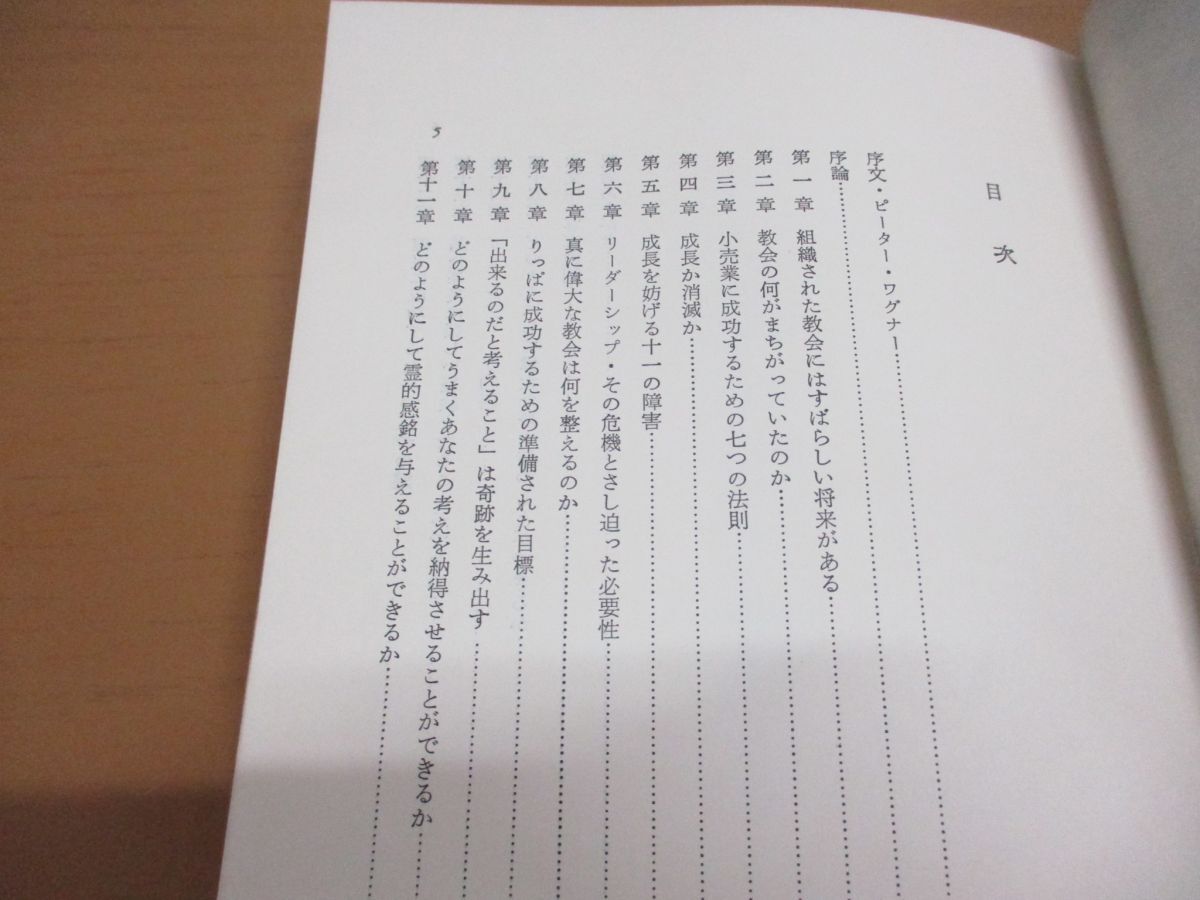 目次
序文・ピーター・ワグナー……………………………
序論……………………………
第一章 組織された教会にはすばらしい将来がある……………………………
第二章 教会の何がまちがっていたのか……………………………
第三章 小売業に成功するための七つの法則……………………………
第四章 成長か消滅か……………………………
第五章 成長を妨げる十一の障害……………………………
第六章 リーダーシップ・その危機とさし迫った必要性……………………………
第七章 真に偉大な教会は何を整えるのか……………………………
第八章 りっぱに成功するための準備された目標……………………………
第九章 「出来るのだと考えること」は奇跡を生み出す……………………………
第十章 どのようにしてうまくあなたの考えを納得させることができるか……………………………
第十一章 どのようにして霊的感銘を与えることができるか……………………………
5